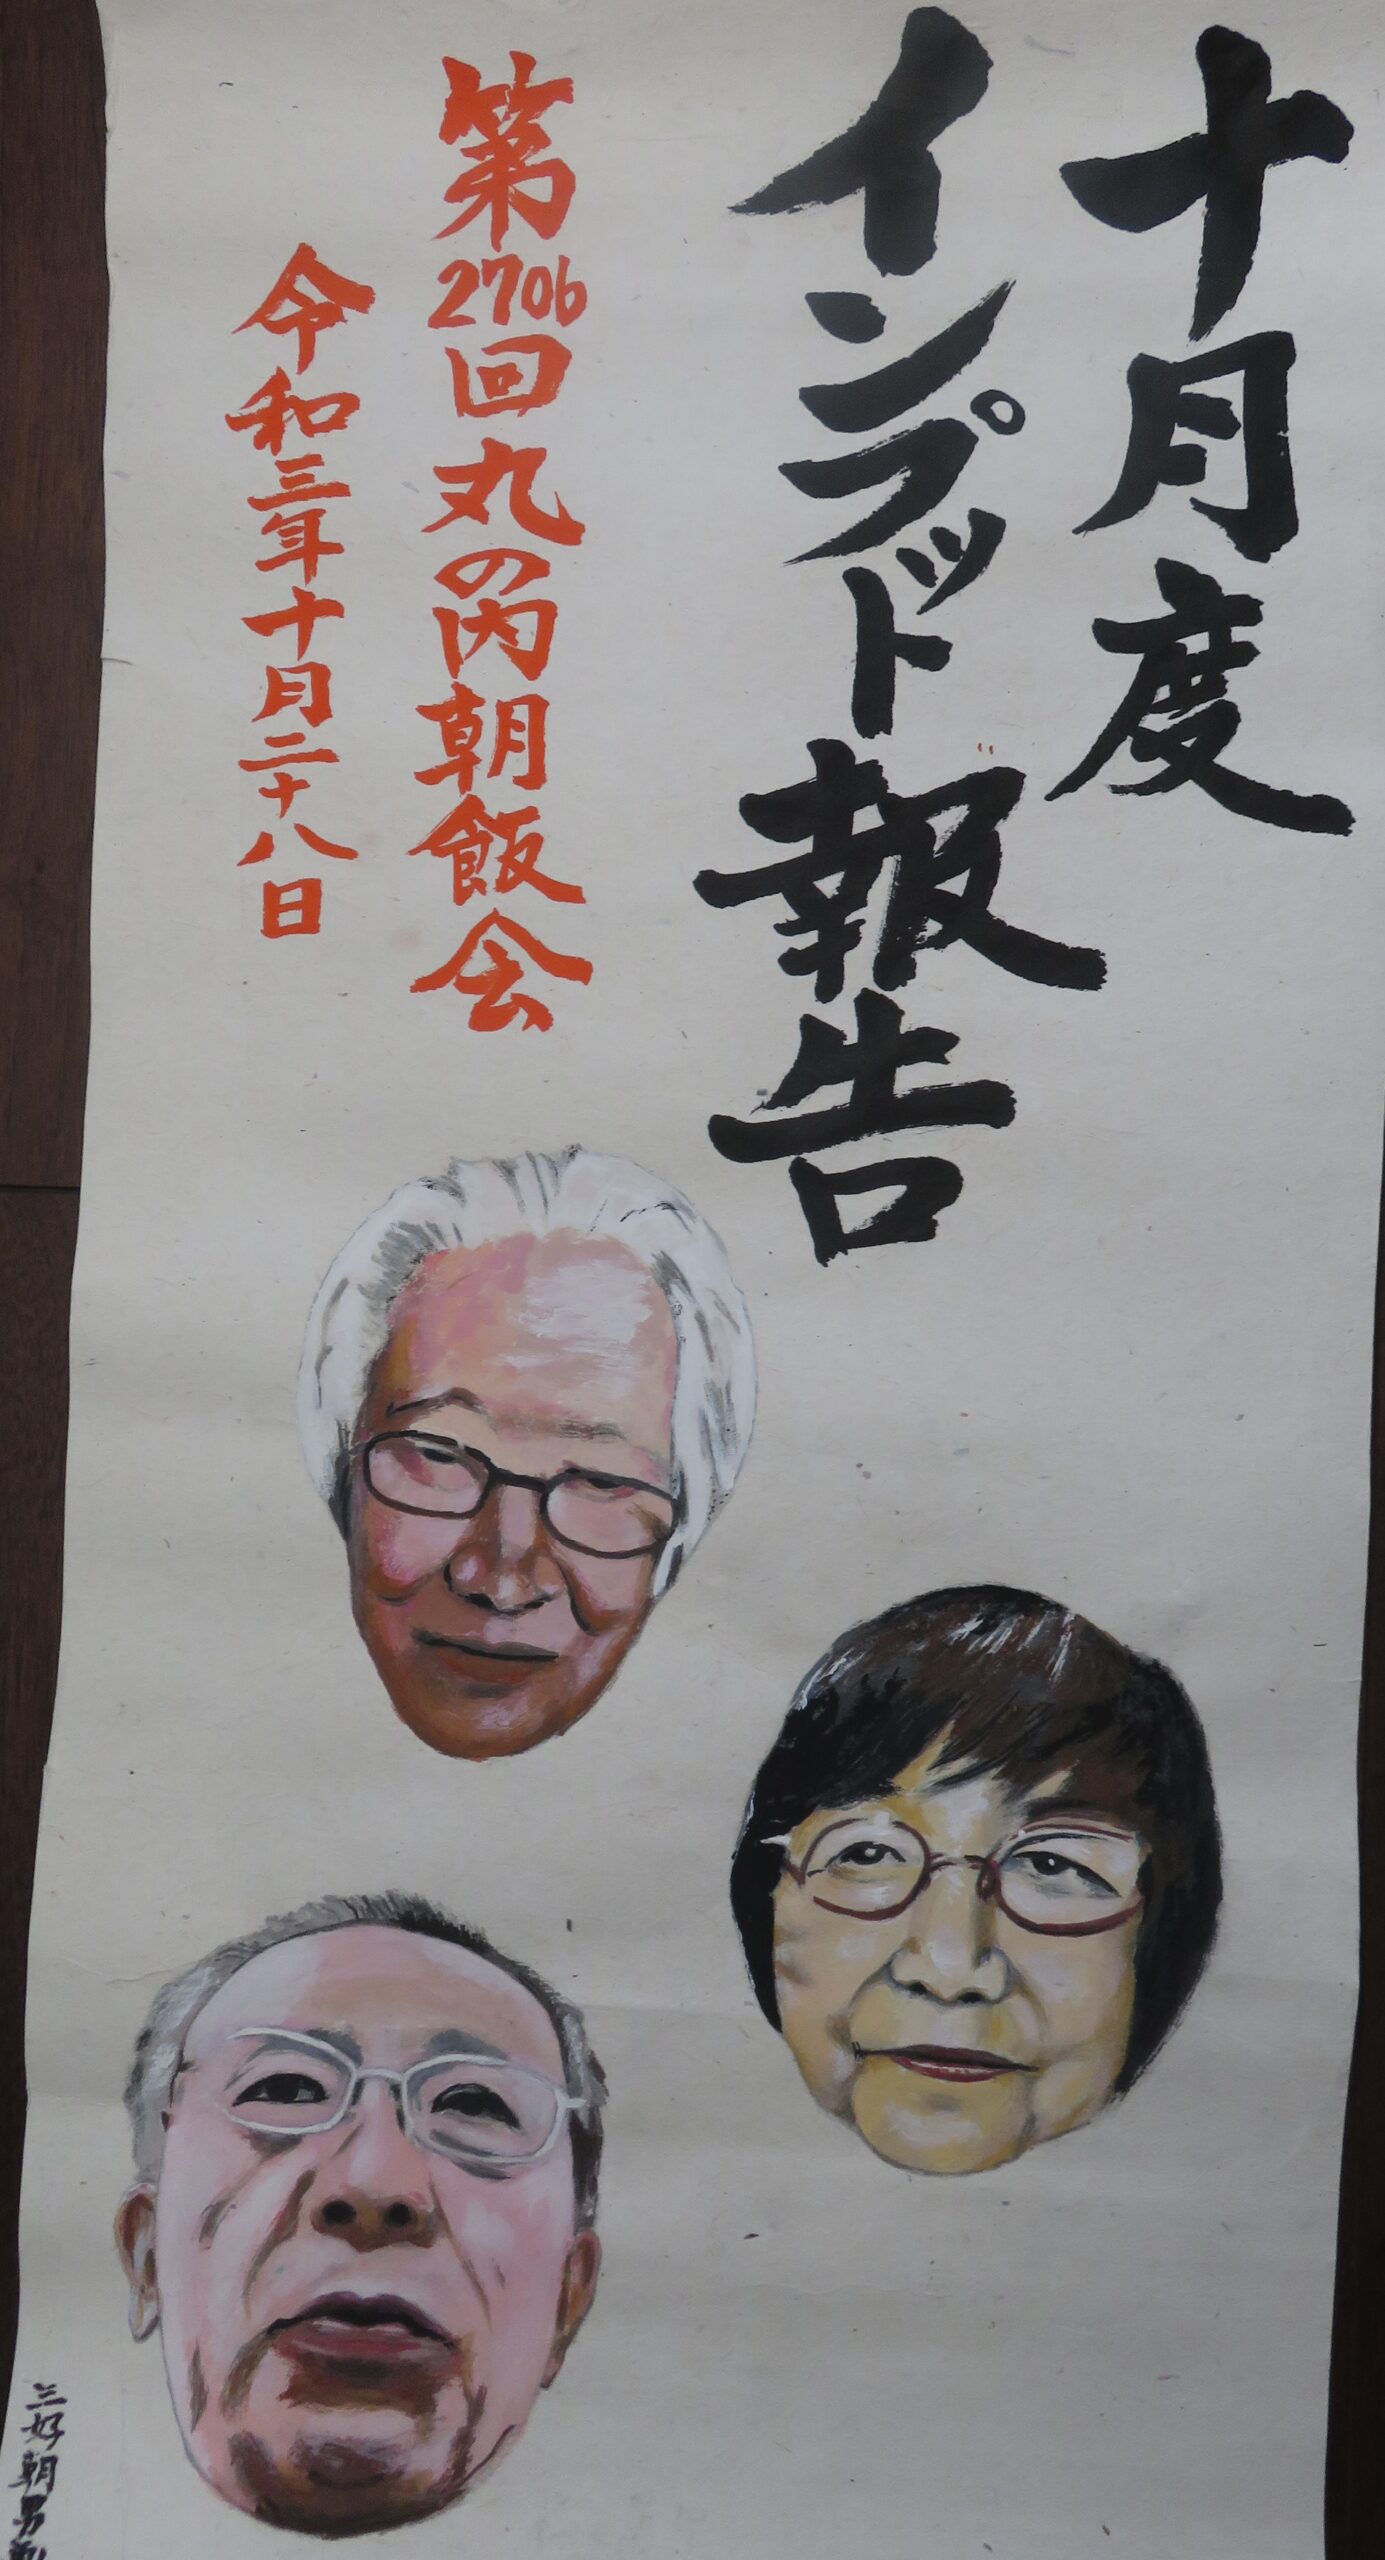 十月度
インプット報告
第2706回丸の内朝飯会
令和三年十月二十八日
三好朝男